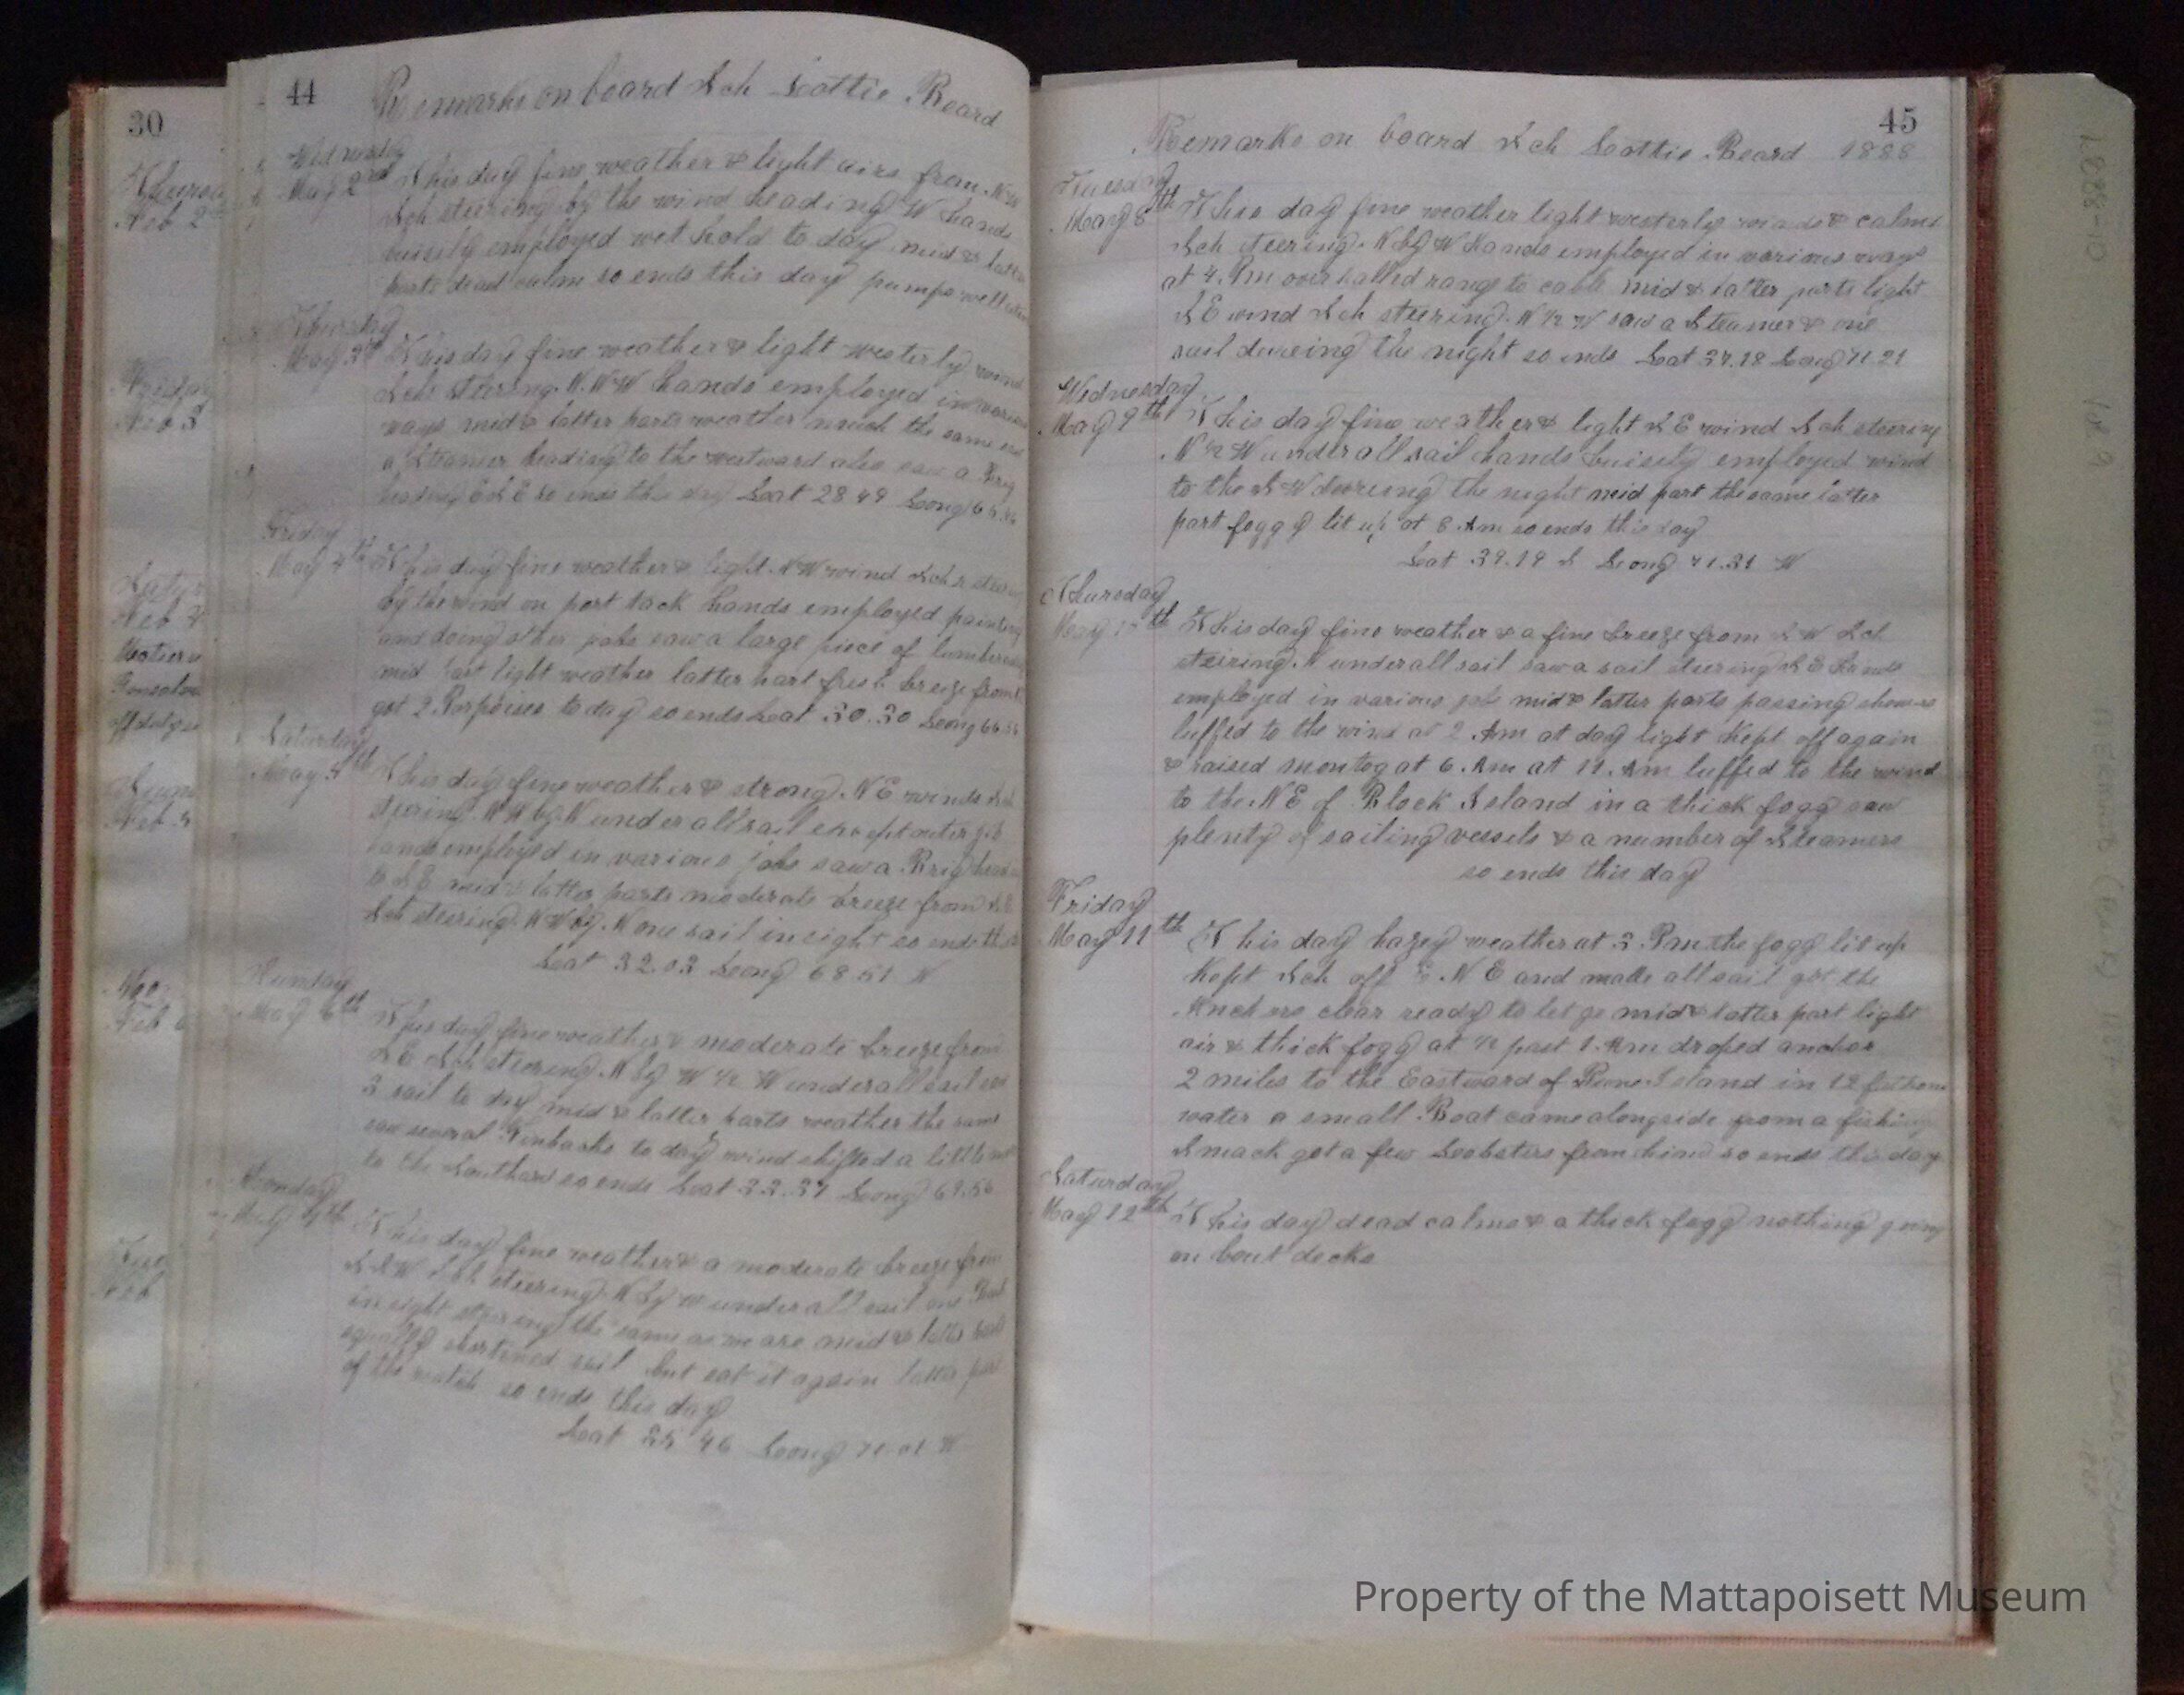 30
Feb 2
Friday
Feb 3
Feb 4
Feb 5
Feb 6
Feb
44
Remarks on board Sch Lottie Beard
Wednesday
May 2nd This day fine weather & light airs from NW
Sch steering by the wind heading W hands
buisily employed wet hold to day mid & latter
parts dead calm so ends this day pumps well
Thursday
May 3d This day fine weather & light westerly wind
Sch steering N.N.W hands employed in various
ways mid & latter parts weather much the same
a Steamer heading to the westward also saw a Brig
heading E S E so ends this day Lat 28 49 Long
Friday
May 4th This day fine weather & light NW wind Sch
by the wind on port tack hands employed painting
and doing other jobs saw a large piece of lumber
mid part light weather latter part fresh breeze from
got 2 Porpoises to day so ends Lat 30.30 Long 66
Saturday
May 5th This day fine weather & strong N E winds Sch
steering N W by N under all sail except outer jib
hands employed in various jobs saw a Brig
to S E mid & latter parts moderate breeze from
Sch steering NW by N one sail in sight so ends
Lat 32.03 Long 68 51 W
Sunday
May 6th This day fine weather & moderate breeze from
S E Sch steering N by W 1/2 W under all sail saw
3 sail to day mid & latter parts weather the same
saw several Finbacks to day wind shifted a little
to the Southard so ends Lat 33.37 Long 69.56
Monday
May 7th This day fine weather & a moderate breeze from
S S W Sch steering N by W under all sail one Sail
in sight steering the same as we are mid & latter part
squally shortened sail but sat it again latter part
of the watch so ends this day
Lat 35 46 Long 71.01 W
45
Remarks on board Sch Lottie Beard 1888
Tuesday
May 8th This day fine weather light westerly winds & calms
Sch steering N by W Hands employed in various ways
at 4 Am overhalled range to cable mid & latter parts light
S E wind Sch steering N 1/2 W saw a Steamer & one
sail dureing the night so ends Lat 37.18 Long 71.21
Wednesday
May 9th This day fine weather & light S E wind Sch steering
N 1/2 W under all sail hands buisily employed wind
to the S W dureing the night mid part the same latter
part foggy lit up at 8 Am so ends this day
Lat 39.19 Long 71.31 W
Thursday
May 10th This day fine weather & a fine breeze from S W Sch
steiring N under all sail saw a sail steering S E hands
employed in various jobs mid & latter parts passing showers
luffed to the wind at 2 Am at day light Kept off again
& raised montog at 6 Am at 11 Am luffed to the wind
to the N E of Block Island in a thick fogg saw
plenty of sailing vessels & a number of Steamers
so ends this day
Friday
May 11th This day hazey weather at 3 Pm the fogg lit up
Kept Sch off N E and made all sail got the
Anchors clear ready to let go mid & latter part light
air & thick fogg at 1/2 past 1 Am droped anchor
2 miles to the Eastward of Island in 12 fathoms
water a small Boat came alongside from a fishing
Smack got a few Loobsters from him so ends this day
Saturday
May 12th This day dead calm & a thick fogg nothing going
on bout decks
Property of the Mattapoisett Museum